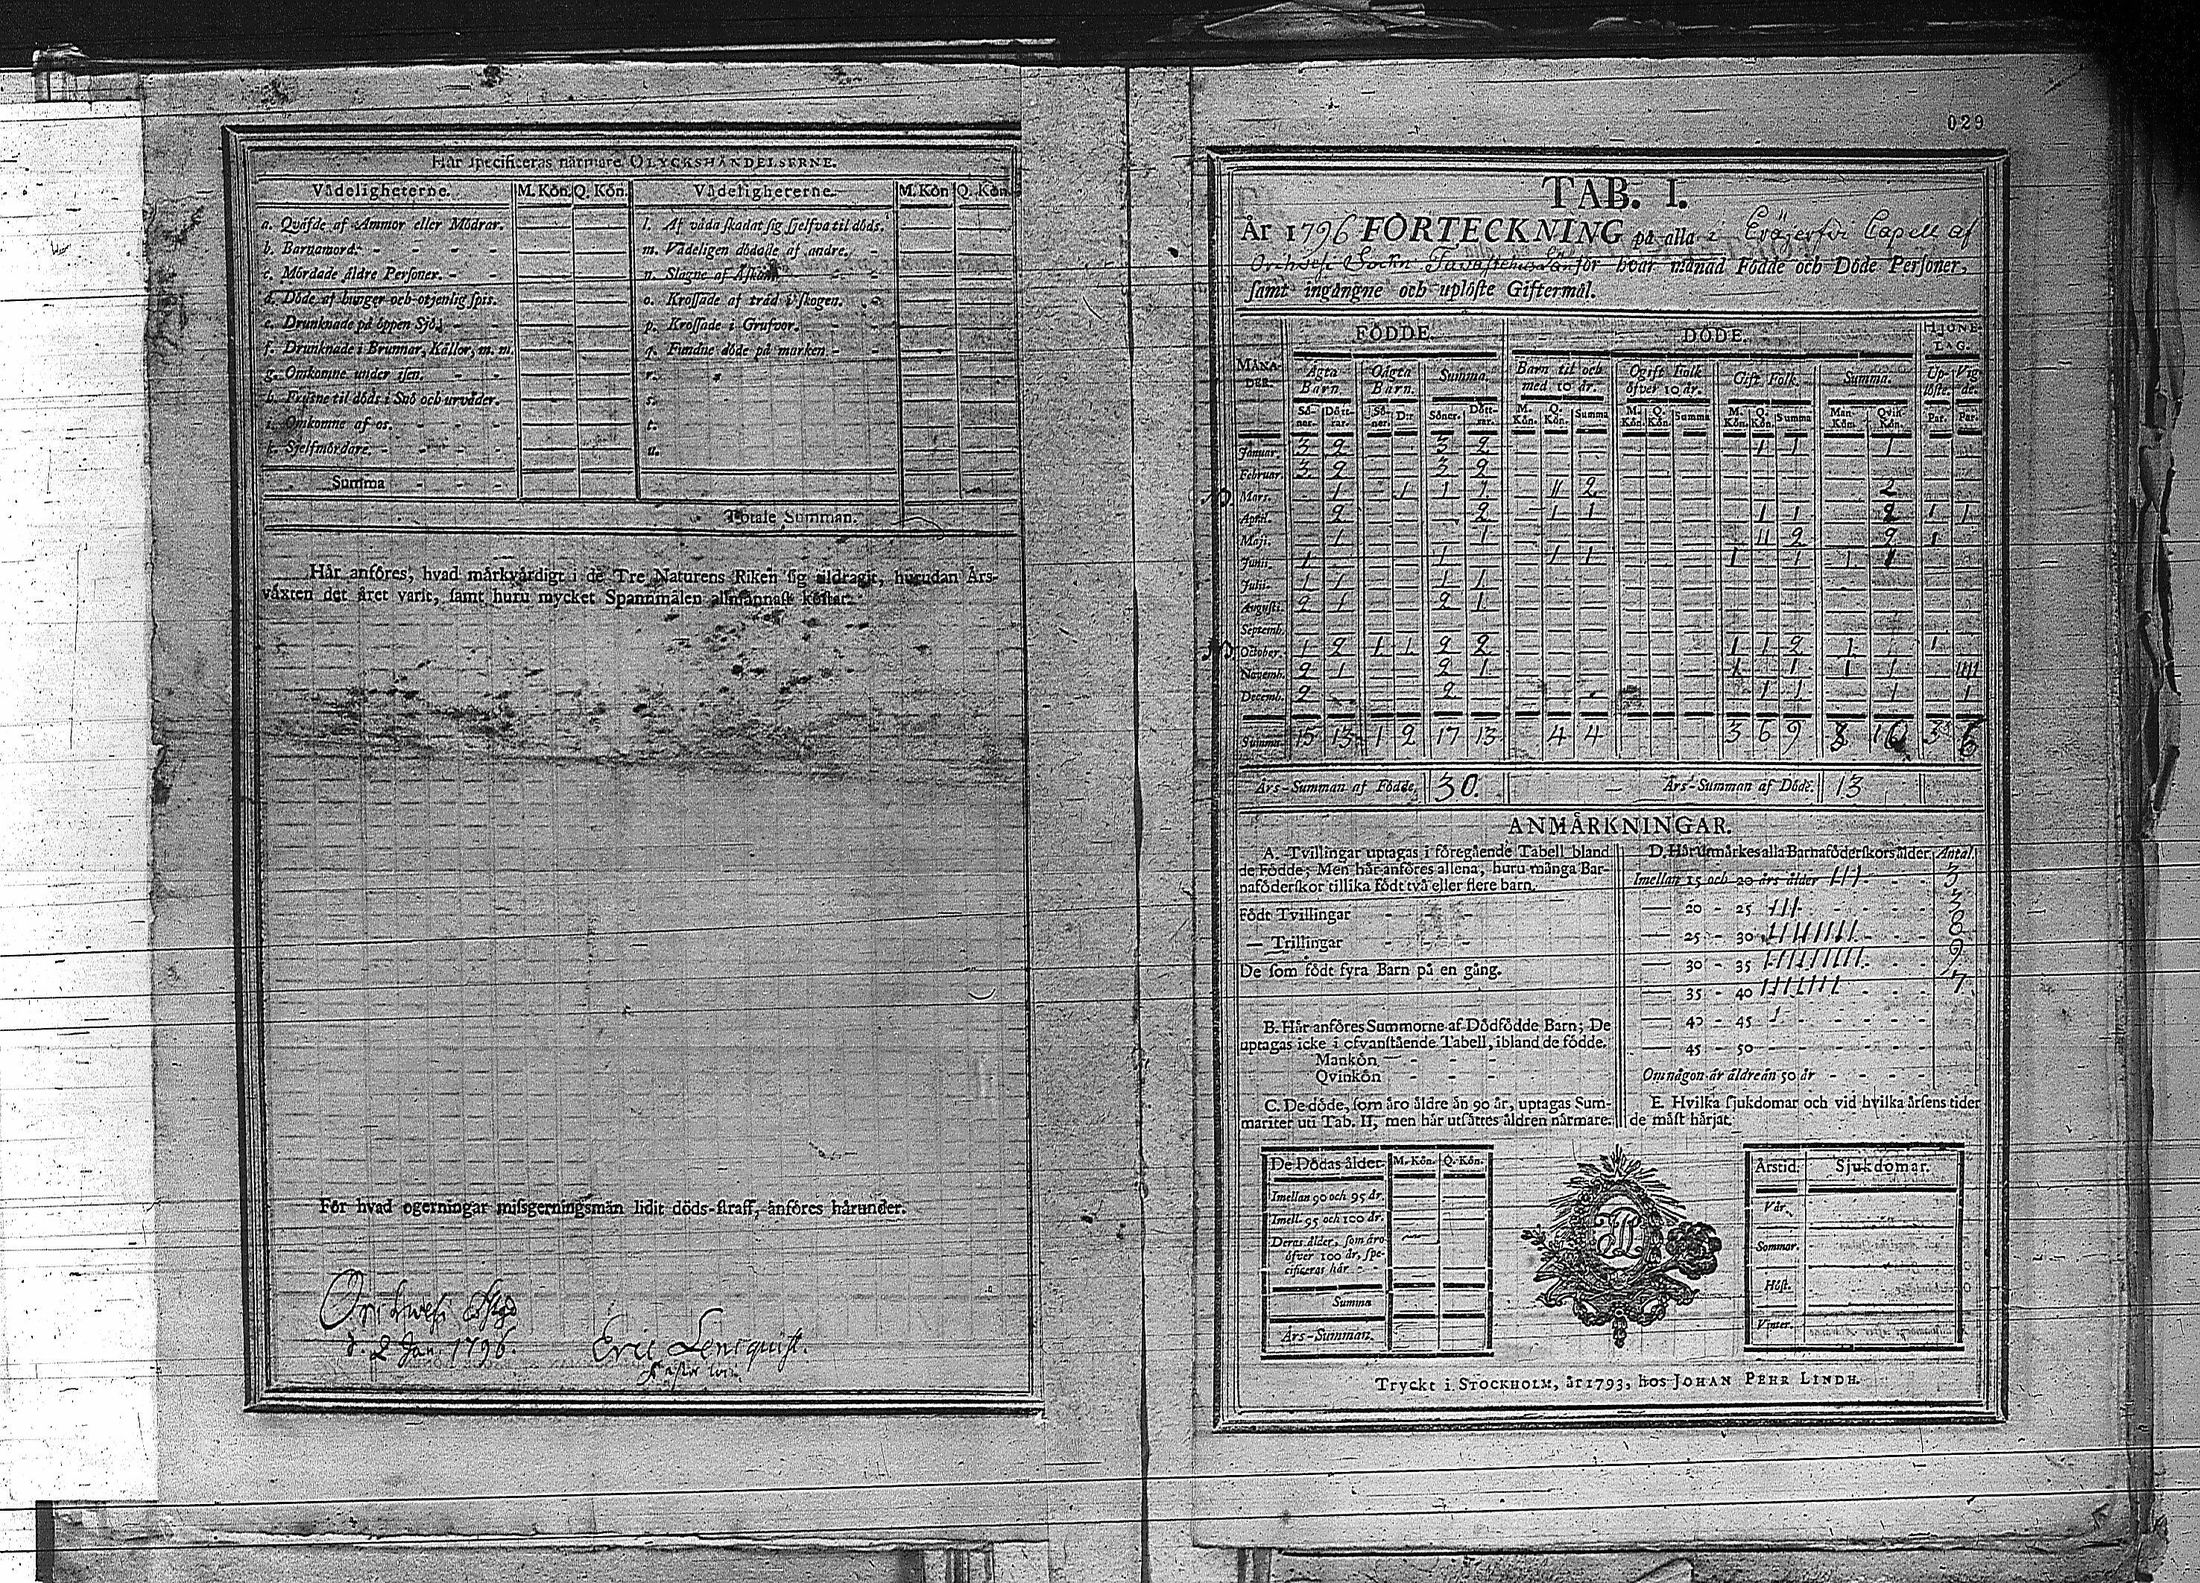 Hår specificeras nårmare OLYCKSHÅNDELSERNE.
Vådeligheterne. M. Kön. Q. Kön. Vådeligheterne. M. Kön Q. Kön.
a. Qvåfde af Ammor eller Mödrar.
b. Barnamord.
c. Mördade åldre Personer.
d. Döde af hunger och otjenlig spis.
e. Drunknade på öppen Sjö.
f. Drunknade i Brunnar, Kållor, m. m.
g. Omkomne under isen.
h. Frusne til döds i Snö och urvåder.
i. Omkomne af os.
k. Sjelfmördare.
Summa
l. Af våda skadat sig sjelfva til döds.
m. Vådeligen dödade af andre.
n. Slagne af Åskan.
o. Krossade af tråd i skogen.
p. Krossade i Grufvor.
q. Fundne döde på marken
r.
s.
t.
u.
Totale Summan.
Hår anföres, hvad mårkvårdigt i de Tre Naturens Riken sig tildragit, hurudan Års-
våxten det året varit, samt huru mycket Spannmålen allmånnast kostar.
För hvad ogerningar missgerningsmån lidit döds-straff, anföres hårunder.
Orihwesi
d. 2 Jan. 1796.
Eric Lencquist.
029
TAB. I.
År 1796 FÖRTECKNING på alla i Eräjerfvi Capell af
Orihwesi Sockn Tavastehus Län för hvar månad Födde och Döde Personer,
samt ingångne och uplöste Giftermål.
FÖDDE. DÖDE. HJONE-LAG.
MÅNA-DER. Ågta Barn. Oågta Barn. Summa. Barn til och med 10 år. Ogift Folk öfver 10 år. Gift Folk. Summa. Up-löste. Vig-de.
Sö-ner. Dött-rar. Sö-ner. D:r Söner. Dött-rar. M. Kön. Q. Kön. Summa M. Kön. Q. Kön. Summa M. Kön. Q. Kön. Summa Man-Kön. Qvin-Kön. Par. Par.
Januar. 3 2 3 2 1 1 1
Februar. 3 2 3 2
Mars. 1 1 1 1 11 2 2
April. 2 2 1 1 1 1 2 1 1
Maji. 1 1 11 2 2 1
Junii. 1 1 1 1 1 1 1 1
Julii. 1 1 1 1
Augusti. 2 1 2 1
Septemb.
October. 1 2 1 1 2 2 1 1 2 1 1 1
Novemb. 2 1 2 1 1 1 1 1 1111
Decemb. 2 2 1 1 1 1
Summa 15 13 1 2 17 13 4 4 3 6 9 3 10 3 6
Års-Summan af Födde. 30. Års-Summan af Döde. 13
ANMÅRKNINGAR.
A. Tvillingar uptagas i föregående Tabell bland
de Födde; Men hår anföres allena, huru många Bar-
naföderskor tillika födt två eller flere barn.
Födt Tvillingar
— Trillingar
De som födt fyra Barn på en gång.
B. Hår anföres Summorne af Dödfödde Barn; De
uptagas icke i ofvanstående Tabell, ibland de födde.
Mankön
Qvinkön
C. De döde, som åro åldre ån 90 år, uptagas Sum-
mariter uti Tab. II, men hår utsåttes åldren nårmare.
D. Hår utmårkes alla Barnaföderskors ålder Antal.
Imellan 15 och 20 års ålder 111 3
20 - 25 111 3
25 - 30 11111111 8
30 - 35 111111111 9
35 - 40 1111111 7
40 - 45 1
45 - 50
Om någon år åldre ån 50 år
E. Hvilka sjukdomar och vid hvilka årsens tider
de måst hårjat.
De Dödas ålder. M. Kön. Q. Kön.
Imellan 90 och 95 år.
Imell. 95 och 100 år.
Deras ålder, som åro
öfver 100 år, spe-
cificeras hår
Summa
Års-Summan.
Årstid. Sjukdomar.
Vår.
Sommar.
Höst.
Vinter.
Tryckt i STOCKHOLM, år 1793, hos JOHAN PEHR LINDH.